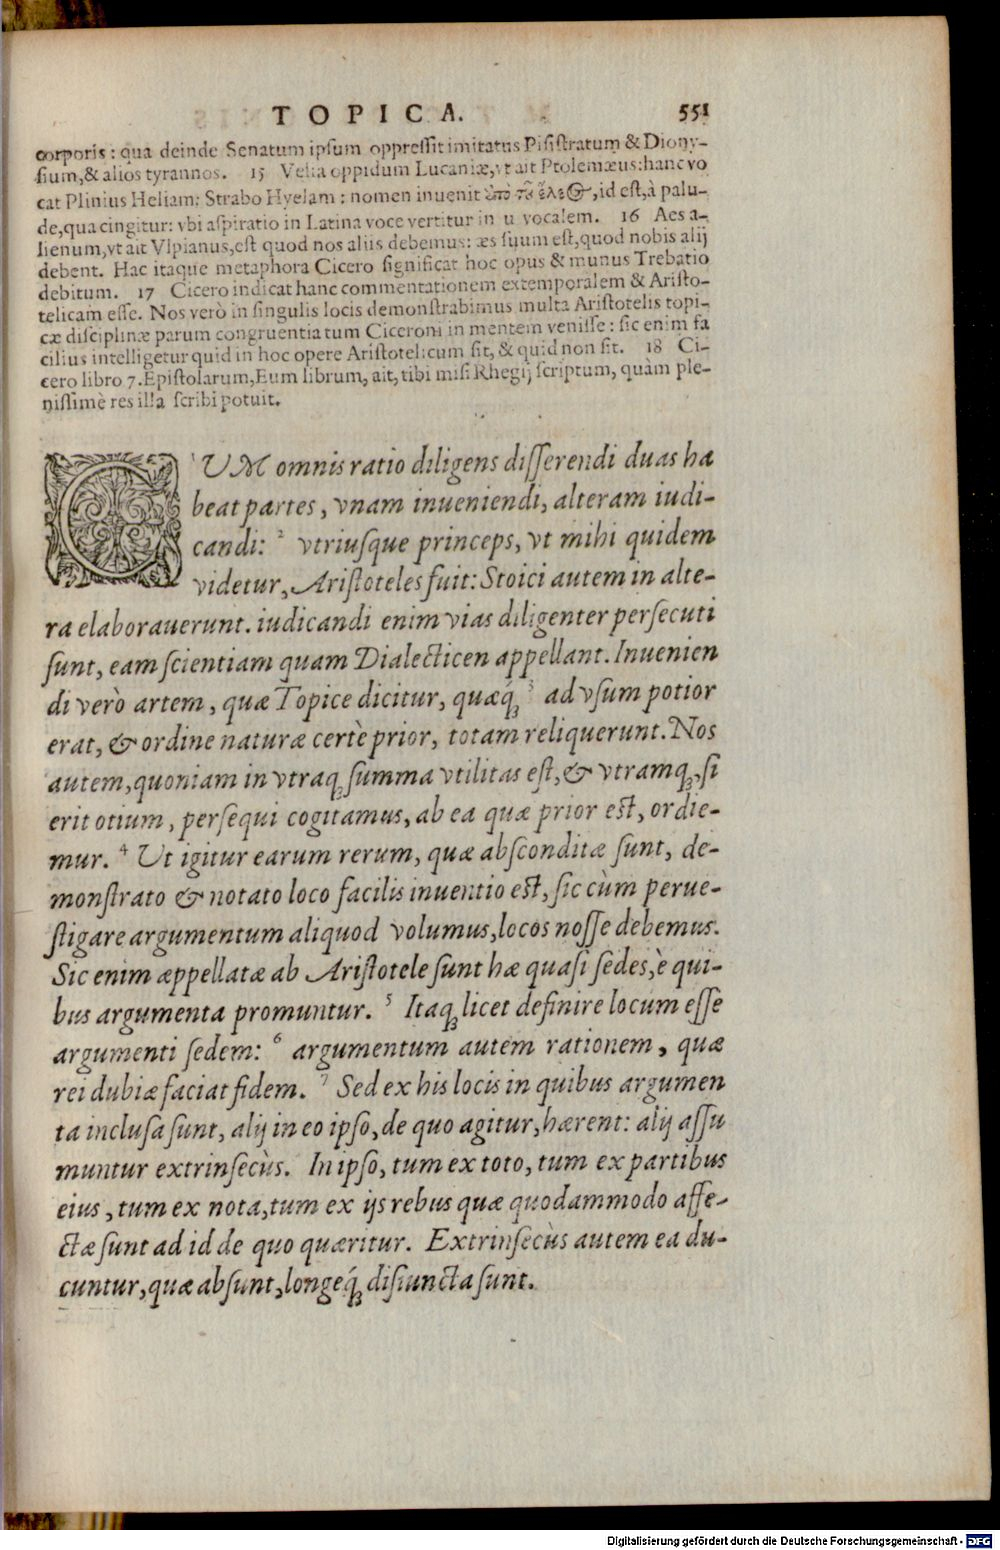 TOPICA. 551
corporis: qua deinde Senatum ipsum oppressit imitatus Pisistratum & Diony-
sium, & alios tyrannos. 15 Velia oppidum Lucaniæ, vt ait Ptolemæus: hanc vo
cat Plinius Heliam: Strabo Hyelam: nomen inuenit ὑπὸ τοῦ ἕλεος, id est, à palu-
de, qua cingitur: vbi aspiratio in Latina voce vertitur in u vocalem. 16 Aes a-
lienum, vt ait Vlpianus, est quod nos aliis debemus: æs suum est, quod nobis alij
debent. Hac itaque metaphora Cicero significat hoc opus & munus Trebatio
debitum. 17 Cicero indicat hanc commentationem extemporalem & Aristo-
telicam esse. Nos verò in singulis locis demonstrabimus multa Aristotelis topi-
cæ disciplinæ parum congruentia tum Ciceroni in mentem venisse: sic enim fa
cilius intelligetur quid in hoc opere Aristotelicum sit, & quid non sit. 18 Ci-
cero libro 7. Epistolarum, Eum librum, ait, tibi misi Rhegij scriptum, quàm ple-
nissimè res illa scribi potuit.
C 1 UM omnis ratio diligens disserendi duas ha
beat partes, vnam inueniendi, alteram iudi-
candi: 2 vtriusque princeps, vt mihi quidem
videtur, Aristoteles fuit: Stoici autem in alte-
ra elaborauerunt. iudicandi enim vias diligenter persecuti
sunt, eam scientiam quam Dialecticen appellant. Inuenien
di verò artem, quæ Topice dicitur, quæq́; 3 ad vsum potior
erat, & ordine naturæ certè prior, totam reliquerunt. Nos
autem, quoniam in vtraq; summa vtilitas est, & vtramq;, si
erit otium, persequi cogitamus, ab ea quæ prior est, ordie-
mur. 4 Ut igitur earum rerum, quæ absconditæ sunt, de-
monstrato & notato loco facilis inuentio est, sic cùm perue-
stigare argumentum aliquod volumus, locos nosse debemus.
Sic enim æppellatæ ab Aristotele sunt hæ quasi sedes, è qui-
bus argumenta promuntur. 5 Itaq; licet definire locum esse
argumenti sedem: 6 argumentum autem rationem, quæ
rei dubiæ faciat fidem. 7 Sed ex his locis in quibus argumen
ta inclusa sunt, alij in eo ipso, de quo agitur, hærent: alij assu
muntur extrinsecùs. In ipso, tum ex toto, tum ex partibus
eius, tum ex nota, tum ex ijs rebus quæ quodammodo affe-
ctæ sunt ad id de quo quæritur. Extrinsecùs autem ea du-
cuntur, quæ absunt, longeq́; disiuncta sunt.
Digitalisierung gefördert durch die Deutsche Forschungsgemeinschaft - DFG